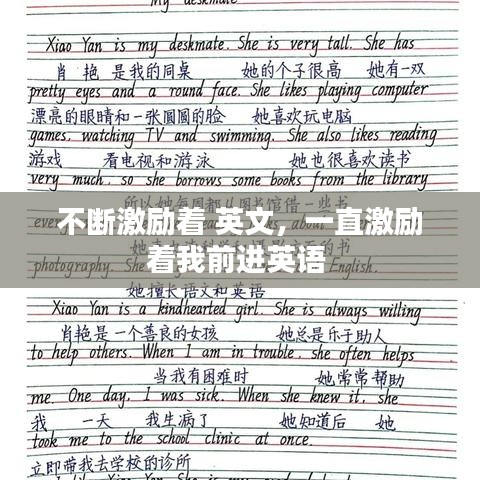 My deskmate
Xiao Yan is my deskmate. She is very tall. She has
肖 艳 是我的同桌 她的个子很高 她有一双
pretty eyes and a round face. She likes playing computer
漂亮的眼睛和一张圆圆的脸 她喜欢玩电脑
games, watching TV and swimming. She also likes reading
游戏 看电视和游泳 她也很喜欢读书
very much, so she borrows some books from the library
所以她每周都从图书馆借一些书
不断激励着 英文，一直激励
着我前进英语
photography. English.
她擅长语文和英语
Xiao Yan is a kindhearted girl. She is always willing
肖艳是一个善良的女孩 她总是乐于助人
to help others. When I am in trouble, she often helps
当我有困难时 她常常帮助
me. One day, I was sick. When she knew it, she
我 一天 我生病了 她知道后 她
took me to the school clinic at once.
立即带我去学校的诊所